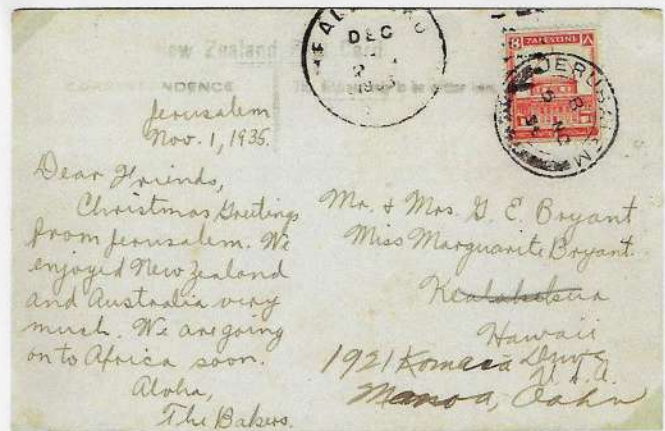 New Zealand Post Card
CORRESPONDENCE
DEC
PALESTINE
8
JERUSALEM
Jerusalem
Nov. 1, 1935.
Dear Friends,
Christmas Greetings
from Jerusalem. We
enjoyed New Zealand
and Australia very
much. We are going
on to Africa soon.
Aloha,
The Bakers.
Mr. & Mrs. G. E. Bryant
Miss Marguarite Bryant.
Kealakekua
Hawaii
U.S.A.
1921 Komaia Drive
Manoa, Oahu